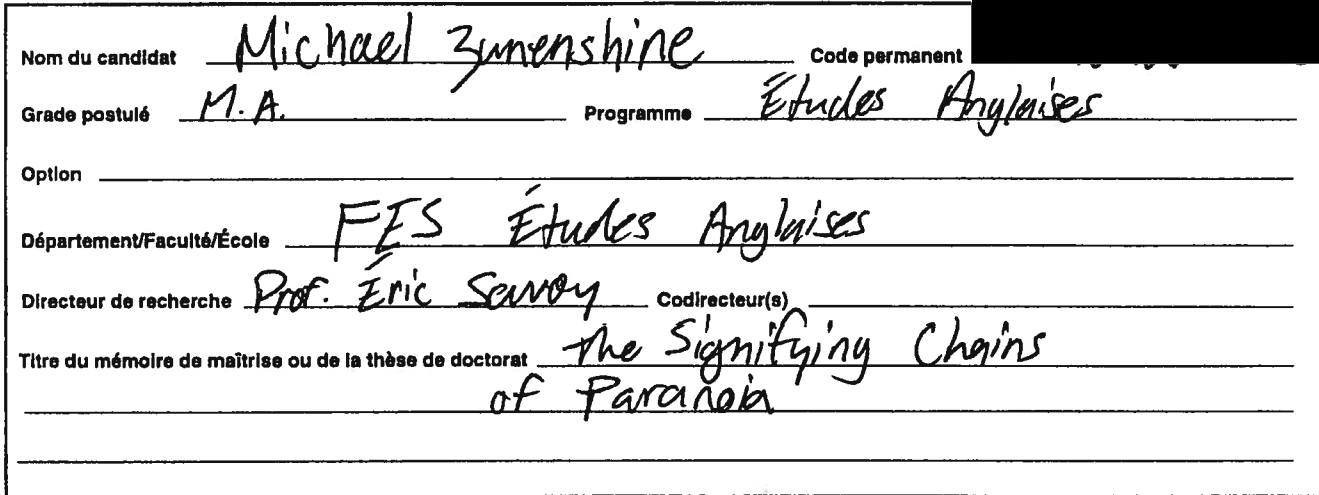 Nom du candidat Michael Zunenshine Code permanent
Grade postulé M.A. Programme Études Anglaises
Option
Département/Faculté/École FES Études Anglaises
Directeur de recherche Prof. Éric Savoy Codirecteur(s)
Titre du mémoire de maîtrise ou de la thèse de doctorat The Signifying Chains
of Paranoia